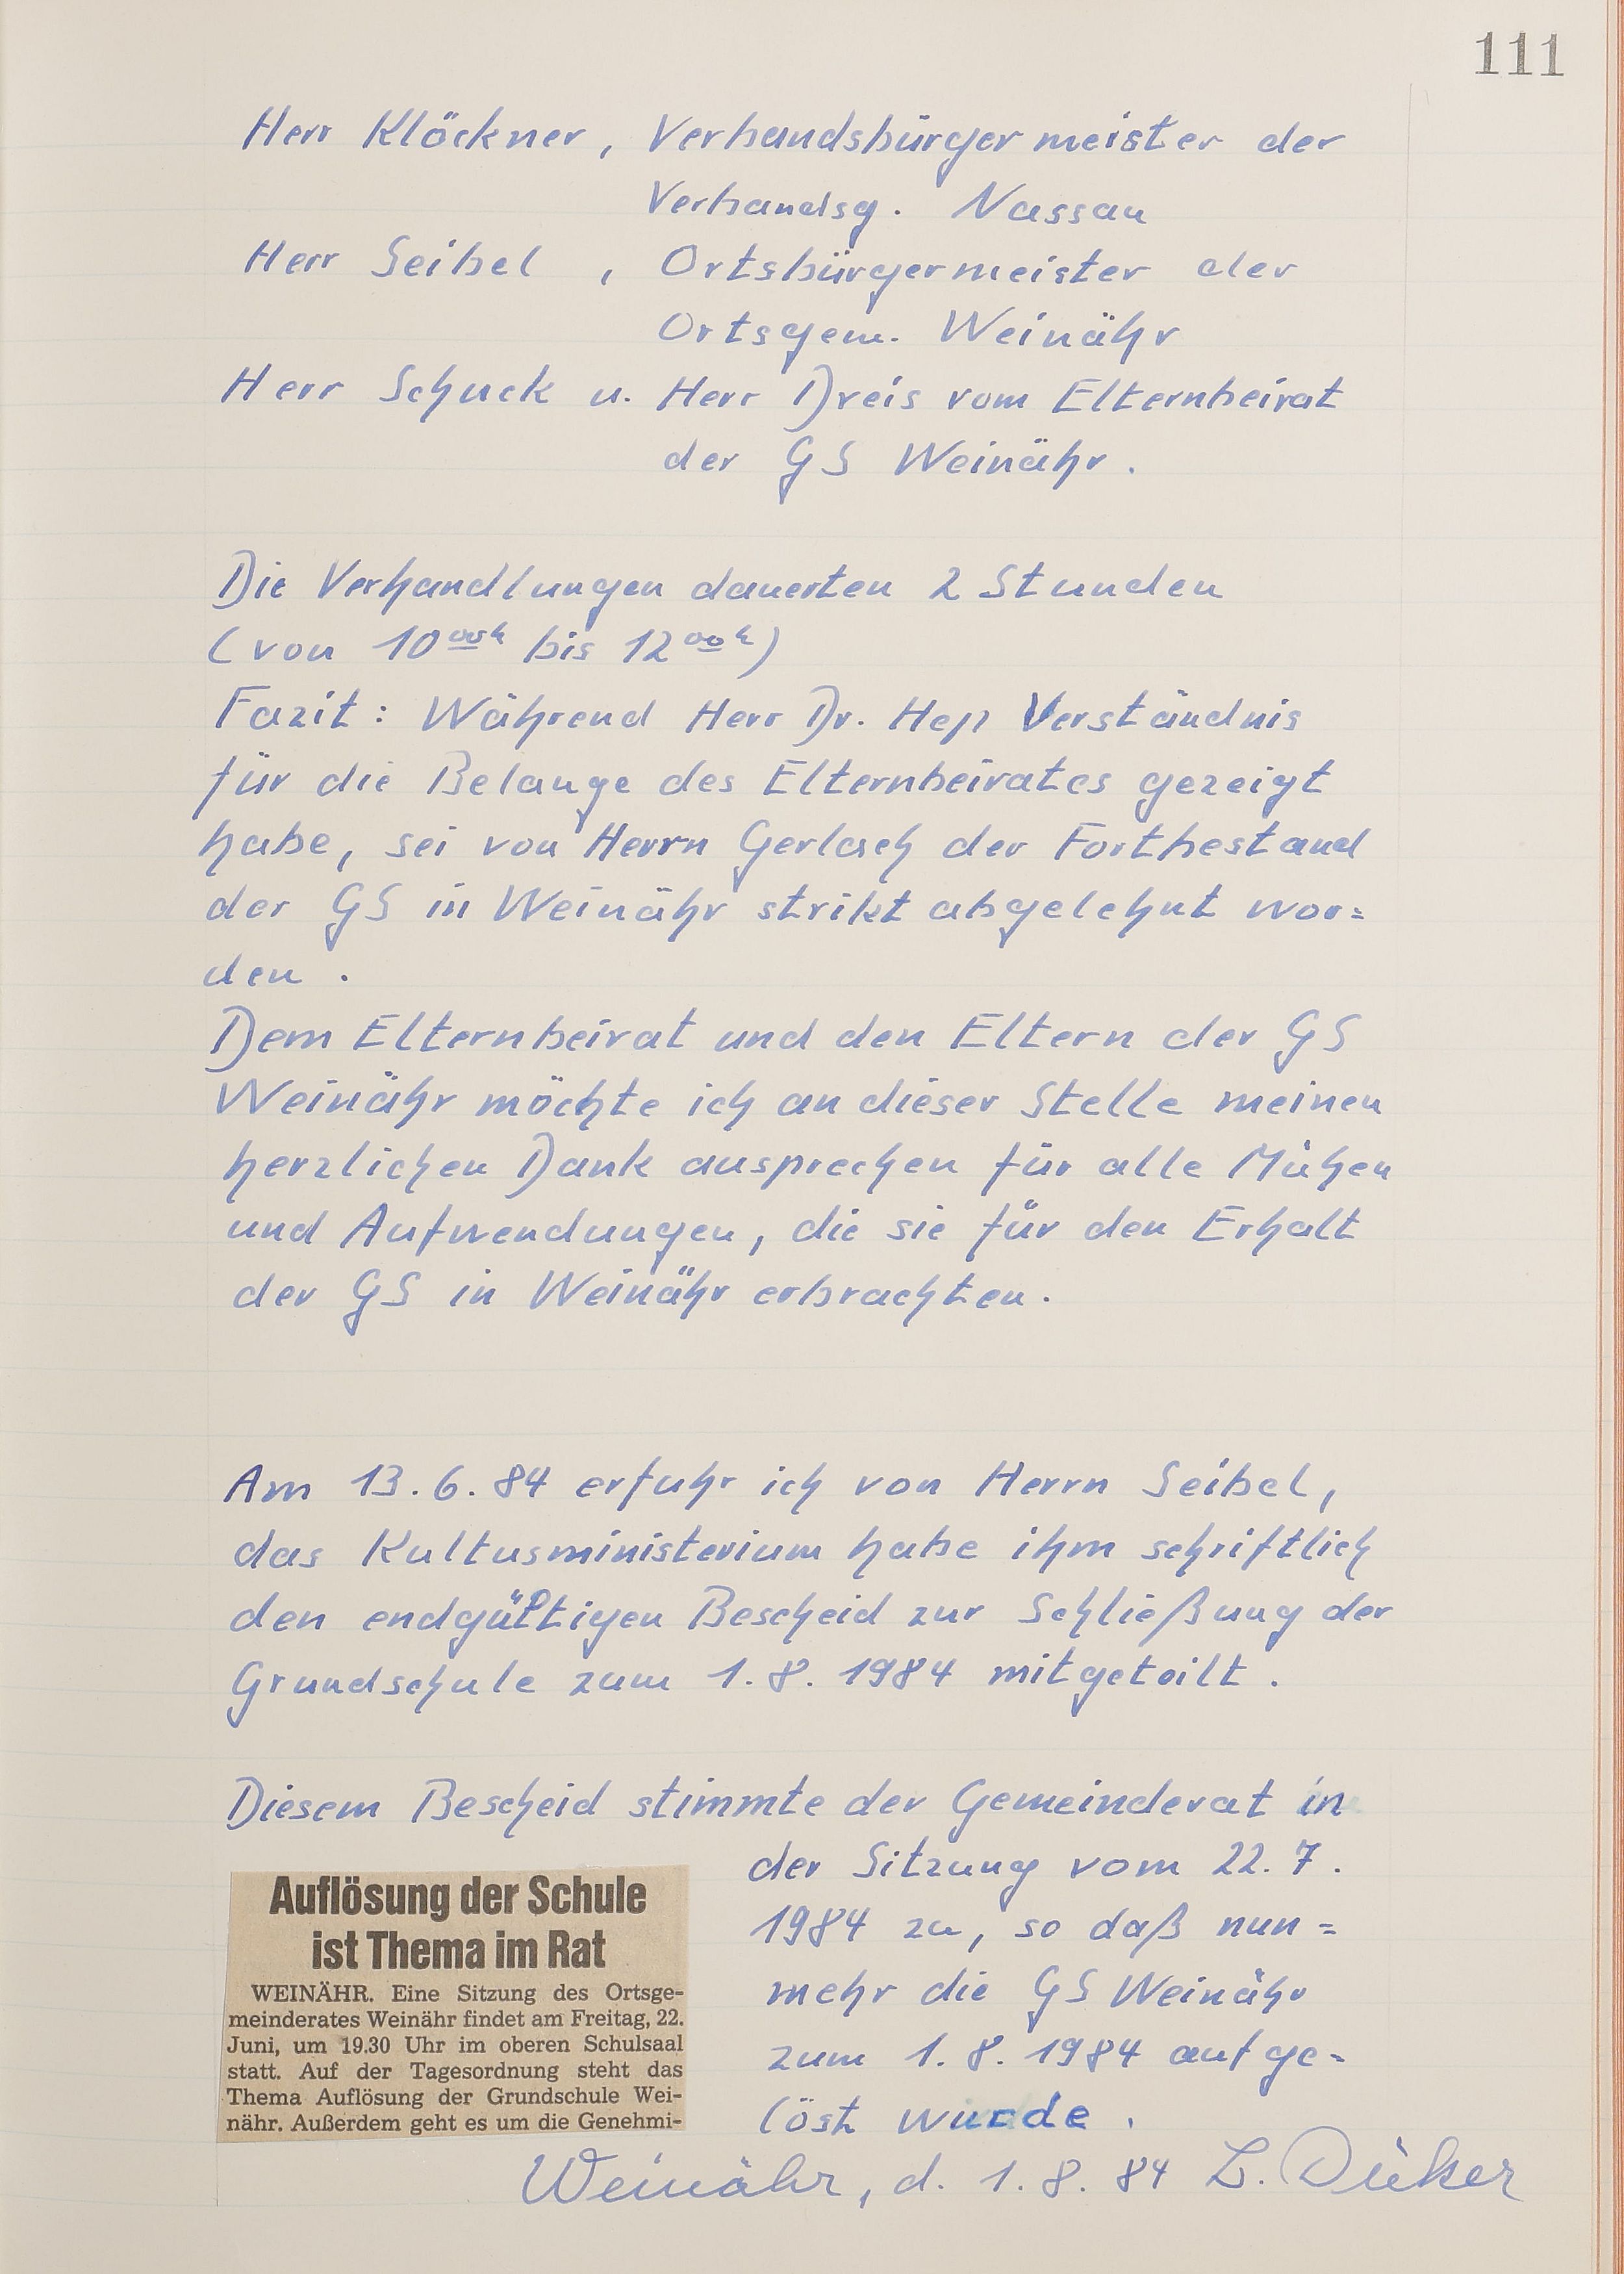 111
Herr Klöckner, Verbandsbürgermeister der
Verbandsg. Nassau
Herr Seibel, Ortsbürgermeister der
Ortsgem. Weinähr
Herr Schuck u. Herr Dreis vom Elternbeirat
der GS Weinähr.
Die Verhandlungen dauerten 2 Stunden
(von 10 00h bis 12 00h)
Fazit: Während Herr Dr. Hep Verständnis
für die Belange des Elternbeirates gezeigt
habe, sei von Herrn Gerlach der Fortbestand
der GS in Weinähr strikt abgelehnt wor=
den.
Dem Elternbeirat und den Eltern der GS
Weinähr möchte ich an dieser Stelle meinen
herzlichen Dank ausprechen für alle Mühen
und Aufwendungen, die sie für den Erhalt
der GS in Weinähr erbrachten.
Am 13.6.84 erfuhr ich von Herrn Seibel,
das Kultusministerium habe ihm schriftlich
den endgültigen Bescheid zur Schließung der
Grundschule zum 1.8.1984 mitgeteilt.
Diesem Bescheid stimmte der Gemeinderat in
der Sitzung vom 22.7.
1984 zu, so daß nun=
mehr die GS Weinähr
zum 1.8.1984 aufge-
löst wurde.
Auflösung der Schule
ist Thema im Rat
WEINÄHR. Eine Sitzung des Ortsge-
meinderates Weinähr findet am Freitag, 22.
Juni, um 19.30 Uhr im oberen Schulsaal
statt. Auf der Tagesordnung steht das
Thema Auflösung der Grundschule Wei-
nähr. Außerdem geht es um die Genehmi-
Weinähr, d. 1.8.84 L. Düker